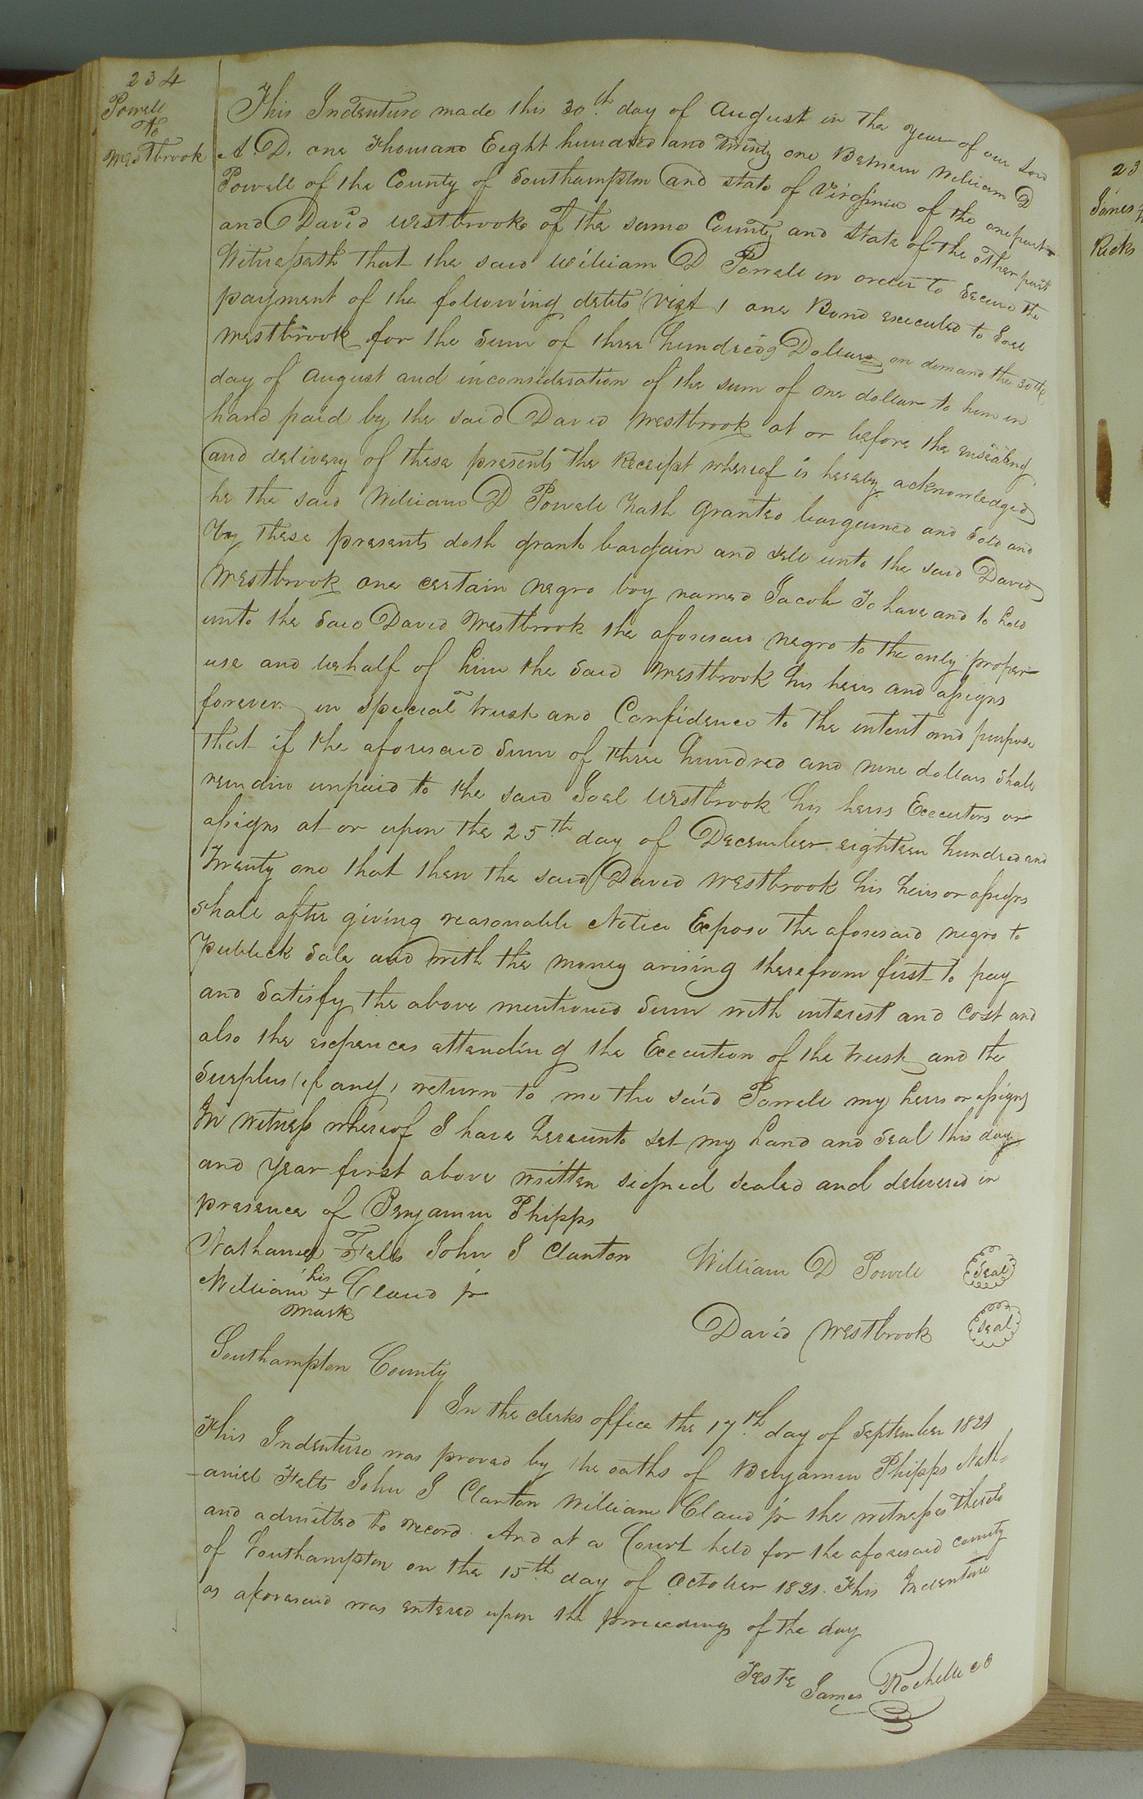 234
Powell
to
Westbrook
This Indenture made this 30th day of August in the year of our Lord
A. D. one Thousand Eight hundred and Twenty one Between William D
Powell of the County of Southampton and state of Virginia of the one part
and David Westbrook of the same County and state of the other part
Witnesseth that the said William D Powell in order to secure the
payment of the following debts (vizt) one Bond executed to Joel
Westbrook for the sum of three hundred 9 Dollars on demand the 30th
day of August and inconsideration of the sum of one dollar to him in
hand paid by the said David Westbrook at or before the ensealing
and delivery of these presents the Receipt whereof is hereby acknowledged
he the said William D Powell hath granted bargained and sold and
by these presents doth grant bargain and sell unto the said David
Westbrook one certain negro boy named Jacob To have and to hold
unto the said David Westbrook the aforesaid negro to the only proper
use and behalf of him the said Westbrook his heirs and assigns
forever in special trust and Confidence to the intent and purpose
that if the aforesaid sum of three hundred and nine dollars shall
remain unpaid to the said Joel Westbrook his heirs Executors or
assigns at or upon the 25th day of December eighteen hundred and
Twenty one that then the said David Westbrook his heirs or assigns
shall after giving reasonable Notice Expose the aforesaid negro to
publick sale and with the money arising therefrom first to pay
and satisfy the above mentioned sum with interest and cost and
also the expences attending the Execution of the trust and the
surplus (if any) return to me the said Powell my heirs or assigns
In witness whereof I have hereunto set my hand and seal this day
and year first above written signed sealed and delivered in
presence of Benjamin Phipps
Nathaniel Felts John J Clanton William D Powell Seal
William his + mark Claud jr
David Westbrook Seal
Southampton County
In the clerks office the 17th day of September 1821
This Indenture was proved by the oaths of Benjamin Phipps Nath-
-aniel Felts John J Clanton William Claud jr the witnesses thereto
and admitted to record. And at a Court held for the aforesaid county
of Southampton on the 15th day of October 1821. This Indenture
as aforesaid was entered upon the proceedings of the day
Teste James Rochelle CC
23
James
Ricks